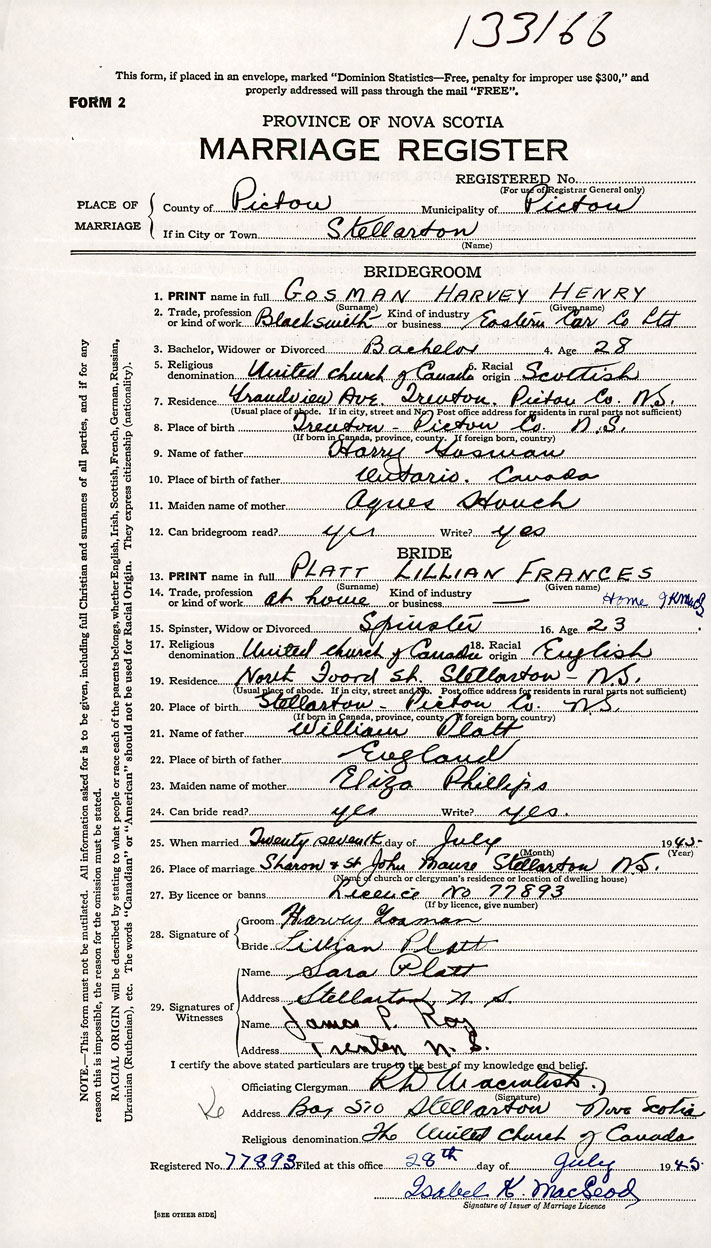 133166
This form, if placed in an envelope, marked "Dominion Statistics—Free, penalty for improper use $300," and
properly addressed will pass through the mail "FREE".
FORM 2
PROVINCE OF NOVA SCOTIA
MARRIAGE REGISTER
REGISTERED No.
(For use of Registrar General only)
PLACE OF MARRIAGE
County of Pictou Municipality of Pictou
If in City or Town Stellarton
(Name)
BRIDEGROOM
1. PRINT name in full GOSMAN HARVEY HENRY
(Surname) (Given name)
2. Trade, profession or kind of work Blacksmith Kind of industry or business Eastern Car Co Ltd
3. Bachelor, Widower or Divorced Bachelor 4. Age 28
5. Religious denomination United church of Canada 6. Racial origin Scottish
7. Residence Grandview Ave. Trenton. Pictou Co. N.S.
(Usual place of abode. If in city, street and No. Post office address for residents in rural parts not sufficient)
8. Place of birth Trenton - Pictou Co. N.S.
(If born in Canada, province, county. If foreign born, country)
9. Name of father Harry Gosman
10. Place of birth of father Ontario. Canada
11. Maiden name of mother Agnes
12. Can bridegroom read? yes Write? yes
BRIDE
13. PRINT name in full PLATT LILLIAN FRANCES
(Surname) (Given name)
14. Trade, profession or kind of work at home Kind of industry or business — Home
15. Spinster, Widow or Divorced Spinster 16. Age 23
17. Religious denomination United church of Canada 18. Racial origin English
19. Residence North Foord St. Stellarton - N.S.
(Usual place of abode. If in city, street and No. Post office address for residents in rural parts not sufficient)
20. Place of birth Stellarton - Pictou Co. N.S.
(If born in Canada, province, county. If foreign born, country)
21. Name of father William Platt
22. Place of birth of father England
23. Maiden name of mother Eliza Phillips
24. Can bride read? yes Write? yes.
25. When married Twenty seventh day of July 1945
(Month) (Year)
26. Place of marriage Sharon & St John Manse Stellarton N.S.
(Name of church or clergyman's residence or location of dwelling house)
27. By licence or banns Licence No 77893
(If by licence, give number)
28. Signature of
Groom Harvey Gosman
Bride Lillian Platt
29. Signatures of Witnesses
Name Sara Platt
Address Stellarton, N. S.
Name James P. Roy
Address Trenton N. S.
I certify the above stated particulars are true to the best of my knowledge and belief.
Officiating Clergyman
(Signature)
Address Box 510 Stellarton Nova Scotia
Religious denomination The United Church of Canada
Registered No. 77893 Filed at this office 28th day of July 1945
Isabel K. MacLeod
Signature of Issuer of Marriage Licence
[SEE OTHER SIDE]
NOTE.—This form must not be mutilated. All information asked for is to be given, including full Christian and surnames of all parties, and if for any
reason this is impossible, the reason for the omission must be stated.
RACIAL ORIGIN will be described by stating to what people or race each of the parents belongs, whether English, Irish, Scottish, French, German, Russian,
Ukrainian (Ruthenian), etc. The words "Canadian" or "American" should not be used for Racial Origin. They express citizenship (nationality).